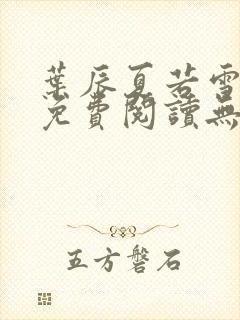 葉辰夏若雪
免費閱讀無
五方磐石